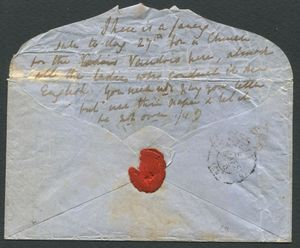 There is a fancy
sale to day 27th for a Church
for the Vaudois here, almost
all the ladies who conduct it are
English. You need not pay your letter
but use thin paper & let it
be not over 1/4